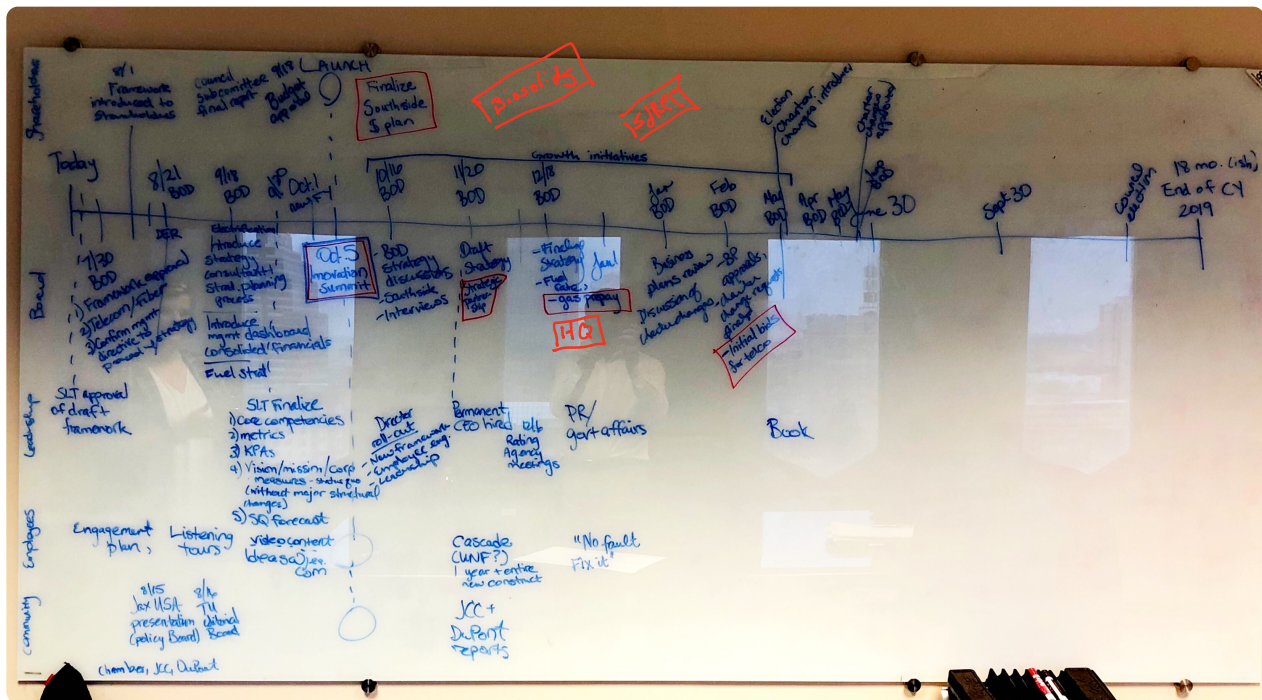 Shareholders
8/1
Framework
introduced to
Stakeholders
Council
subcommittee
final report
9/18
Budget
approval
LAUNCH
Finalize
Southside
$ plan
Biosolids
SJRPP
Election
Charter
changes introduced
Charter
changes
approved
Today
8/21
BOD
9/18
BOD
Oct. 1
new FY
10/16
BOD
11/20
BOD
Growth initiatives
12/18
BOD
Jan
BOD
Feb
BOD
Mar
BOD
Apr
BOD
May
BOD
June
BOD
June 30
Sept 30
Council
election
18 mo. (ish)
End of CY
2019
Board
7/30
BOD
1) Framework approval
2) Telecom/fiber
3) Confirm mgmt
directive to
proceed w/ strategy
DER
Electrification
Introduce
strategy
consultant/
strat. planning
process
Introduce
mgmt dashboard
consolidated financials
Fuel strat
Oct 5
Innovation
Summit
- BOD
strategy
discussions
- Southside
- Interviews
Draft
Strategy
Strategic
partner-
ship
- Finalize
Strategy
- Fuel
rate,
- gas prepay
HQ
Jan 1
Business
plans review
Discussion of
charter changes
- BP
approvals,
charter
change requests
finalized
- Initial bids
for telco
Leadership
SLT approval
of draft
framework
SLT Finalize
1) Core competencies
2) metrics
3) KPAs
4) Vision/mission/corp
measures - status quo
(without major structural
changes)
5) SQ forecast
Director
roll-out
- New framework
- Employee eng.
- Leadership
Permanent
CEO hired
12/6
Rating
Agency
meetings
PR/
gov't affairs
Book
Employees
Engagement
plan,
Listening
tours
video content
Ideas@jea.
com
Cascade
(UNF?)
1 year + entire
new construct
"No fault
Fix it"
Community
8/15
Jax USA
presentation
(policy Board)
TU
editorial
Board
JCC +
DuPont
reports
Chamber, JCC, DuPont